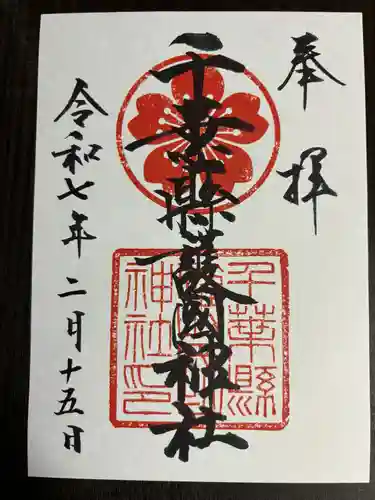 奉拝
千葉縣護國神社
令和七年二月十五日
千葉縣
護國
神社印